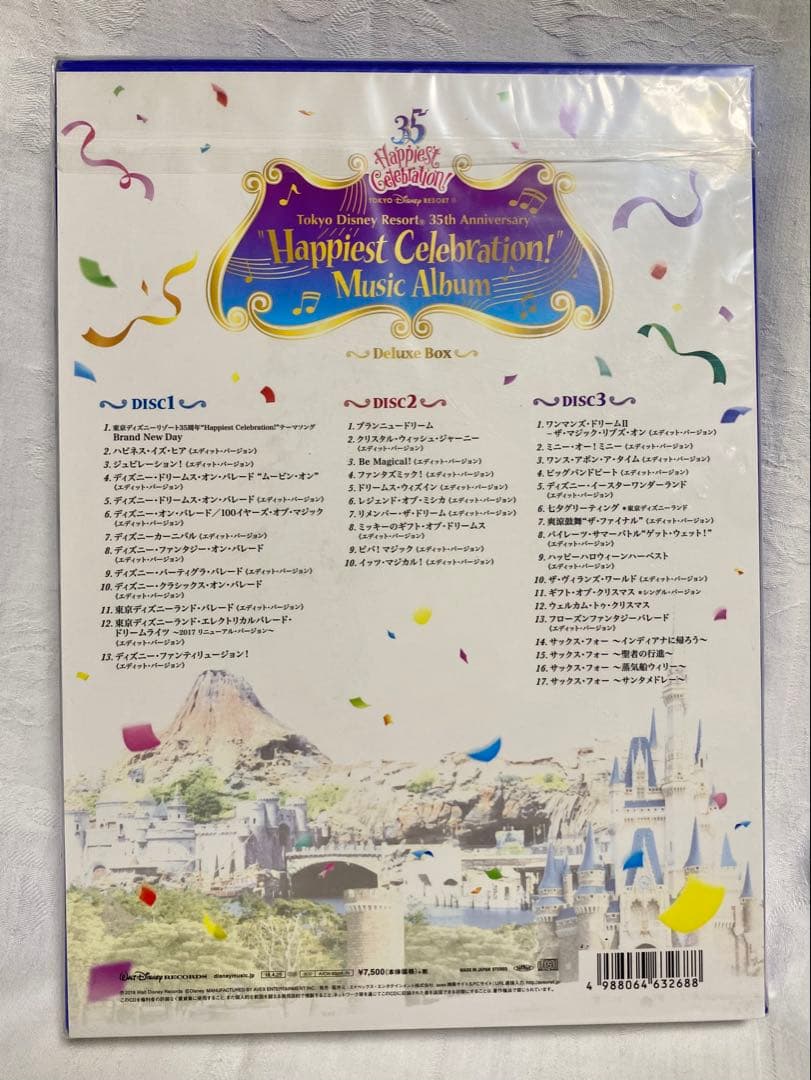 35
Happiest
Celebration!
TOKYO Disney RESORT
Tokyo Disney Resort® 35th Anniversary
"Happiest Celebration!"
Music Album
Deluxe Box
DISC1
1. 東京ディズニーリゾート35周年"Happiest Celebration!"テーマソング
Brand New Day
2. ハピネス・イズ・ヒア (エディット・バージョン)
3. ジュビレーション! (エディット・バージョン)
4. ディズニー・ドリームス・オン・パレード "ムービン・オン"
(エディット・バージョン)
5. ディズニー・ドリームス・オン・パレード (エディット・バージョン)
6. ディズニー・オン・パレード/100イヤーズ・オブ・マジック
(エディット・バージョン)
7. ディズニーカーニバル (エディット・バージョン)
8. ディズニー・ファンタジー・オン・パレード
(エディット・バージョン)
9. ディズニー・パーティグラ・パレード (エディット・バージョン)
10. ディズニー・クラシックス・オン・パレード
(エディット・バージョン)
11. 東京ディズニーランド・パレード (エディット・バージョン)
12. 東京ディズニーランド・エレクトリカルパレード・
ドリームライツ ~2017 リニューアル・バージョン~
(エディット・バージョン)
13. ディズニー・ファンティリュージョン!
(エディット・バージョン)
DISC2
1. ブランニュードリーム
2. クリスタル・ウィッシュ・ジャーニー
(エディット・バージョン)
3. Be Magical! (エディット・バージョン)
4. ファンタズミック! (エディット・バージョン)
5. ドリームス・ウィズイン (エディット・バージョン)
6. レジェンド・オブ・ミシカ (エディット・バージョン)
7. リメンバー・ザ・ドリーム (エディット・バージョン)
8. ミッキーのギフト・オブ・ドリームス
(エディット・バージョン)
9. ビバ! マジック (エディット・バージョン)
10. イッツ・マジカル! (エディット・バージョン)
DISC3
1. ワンマンズ・ドリームII
-ザ・マジック・リブズ・オン (エディット・バージョン)
2. ミニー・オー! ミニー (エディット・バージョン)
3. ワンス・アポン・ア・タイム (エディット・バージョン)
4. ビッグバンドビート (エディット・バージョン)
5. ディズニー・イースターワンダーランド
(エディット・バージョン)
6. 七夕グリーティング *東京ディズニーランド
7. 爽涼鼓舞"ザ・ファイナル" (エディット・バージョン)
8. パイレーツ・サマーバトル"ゲット・ウェット!"
(エディット・バージョン)
9. ハッピーハロウィーンハーベスト
(エディット・バージョン)
10. ザ・ヴィランズ・ワールド (エディット・バージョン)
11. ギフト・オブ・クリスマス *シングル・バージョン
12. ウェルカム・トゥ・クリスマス
13. フローズンファンタジーパレード
(エディット・バージョン)
14. サックス・フォー ~インディアナに帰ろう~
15. サックス・フォー ~聖者の行進~
16. サックス・フォー ~蒸気船ウィリー~
17. サックス・フォー ~サンタメドレー~
WALT DISNEY RECORDS disneymusic.jp 18.4.25 ¥7,500(本体価格)+税 MADE IN JAPAN STEREO
4 988064 632688